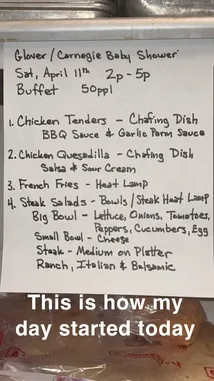 Glover / Carnegie Baby Shower
Sat, April 11th 2p - 5p
Buffet 50ppl
1. Chicken Tenders - Chafing Dish
BBQ Sauce & Garlic Parm Sauce
2. Chicken Quesadilla - Chafing Dish
Salsa & Sour Cream
3. French Fries - Heat Lamp
4. Steak Salads - Bowls / Steak Heat Lamp
Big Bowl - Lettuce, Onions, Tomatoes,
Peppers, Cucumbers, Egg
Small Bowl - Cheese
Steak - Medium on Platter
Ranch, Italian & Balsamic
This is how my
day started today